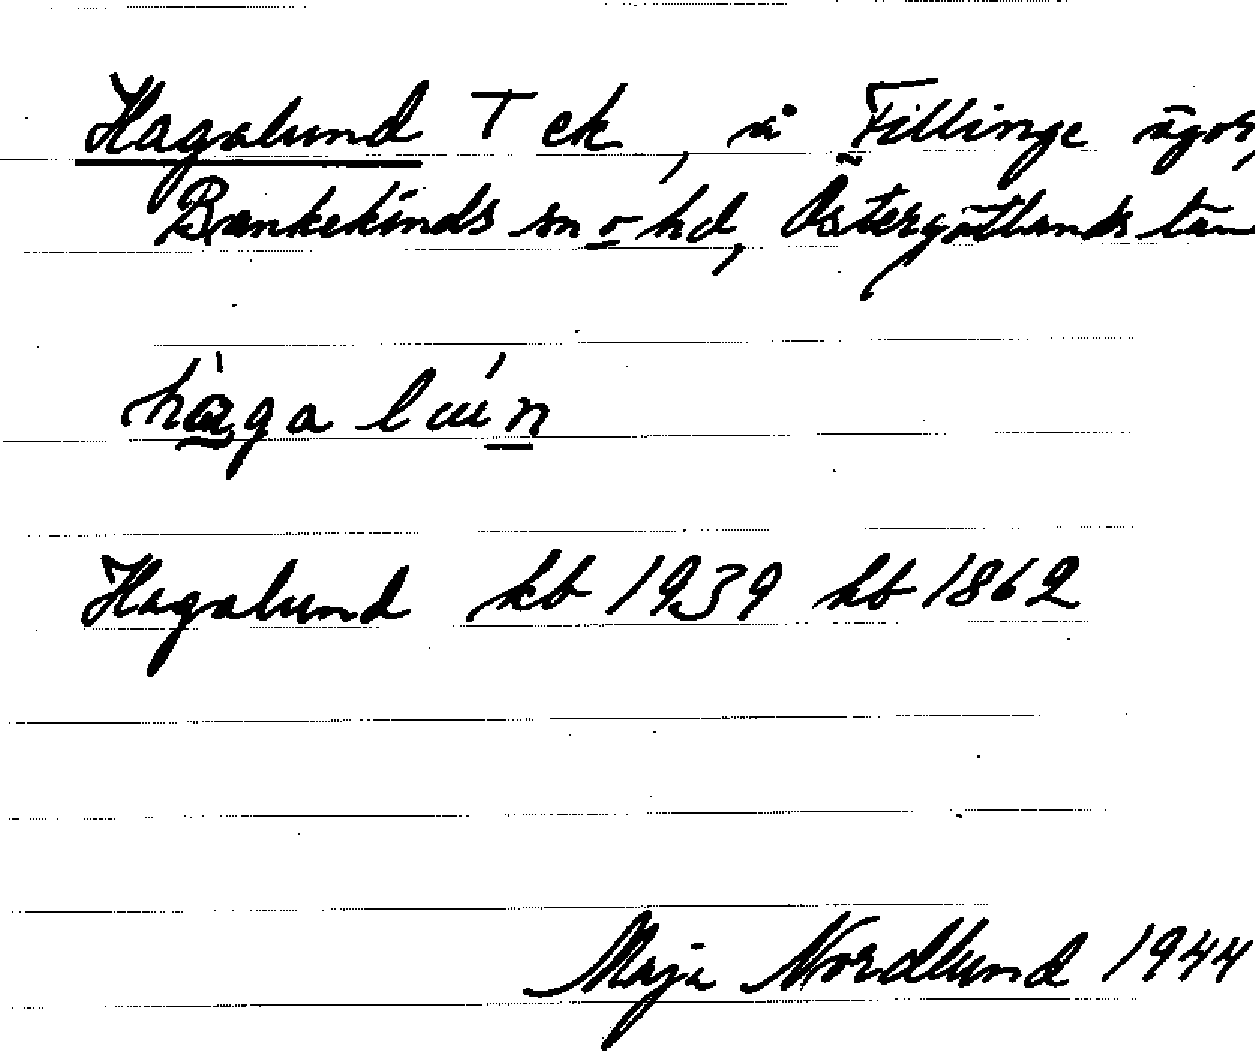 Hagalund T ek, å Fillinge ägor,
Bankekinds sn o hd, Östergötlands län
hàga luń
Hagalund kb 1939 hb 1862
Maja Nordlund 1944